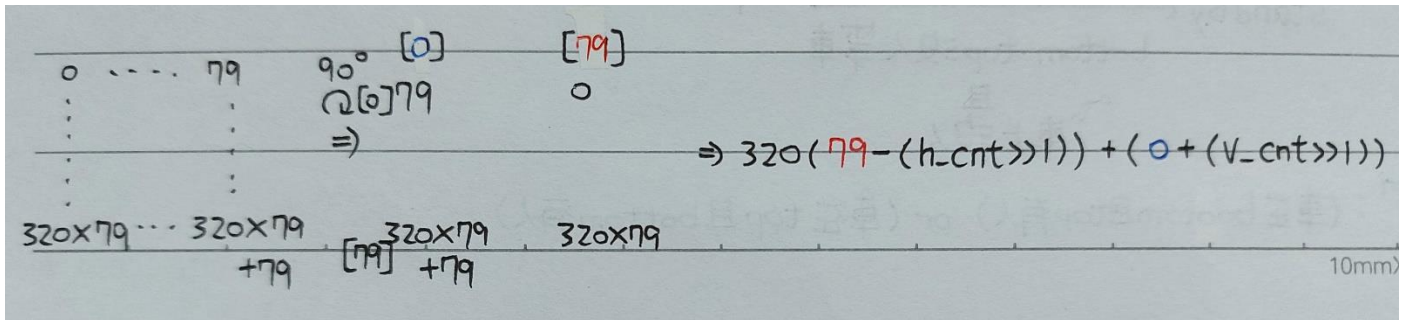 [0] [79]
0 ···· 79 90°
[0]79 0
⇒
⇒ 320(79-(h_cnt>>1))+(0+(V_cnt>>1))
320×79 ··· 320×79 320×79 320×79
+79 [79] +79
10mm